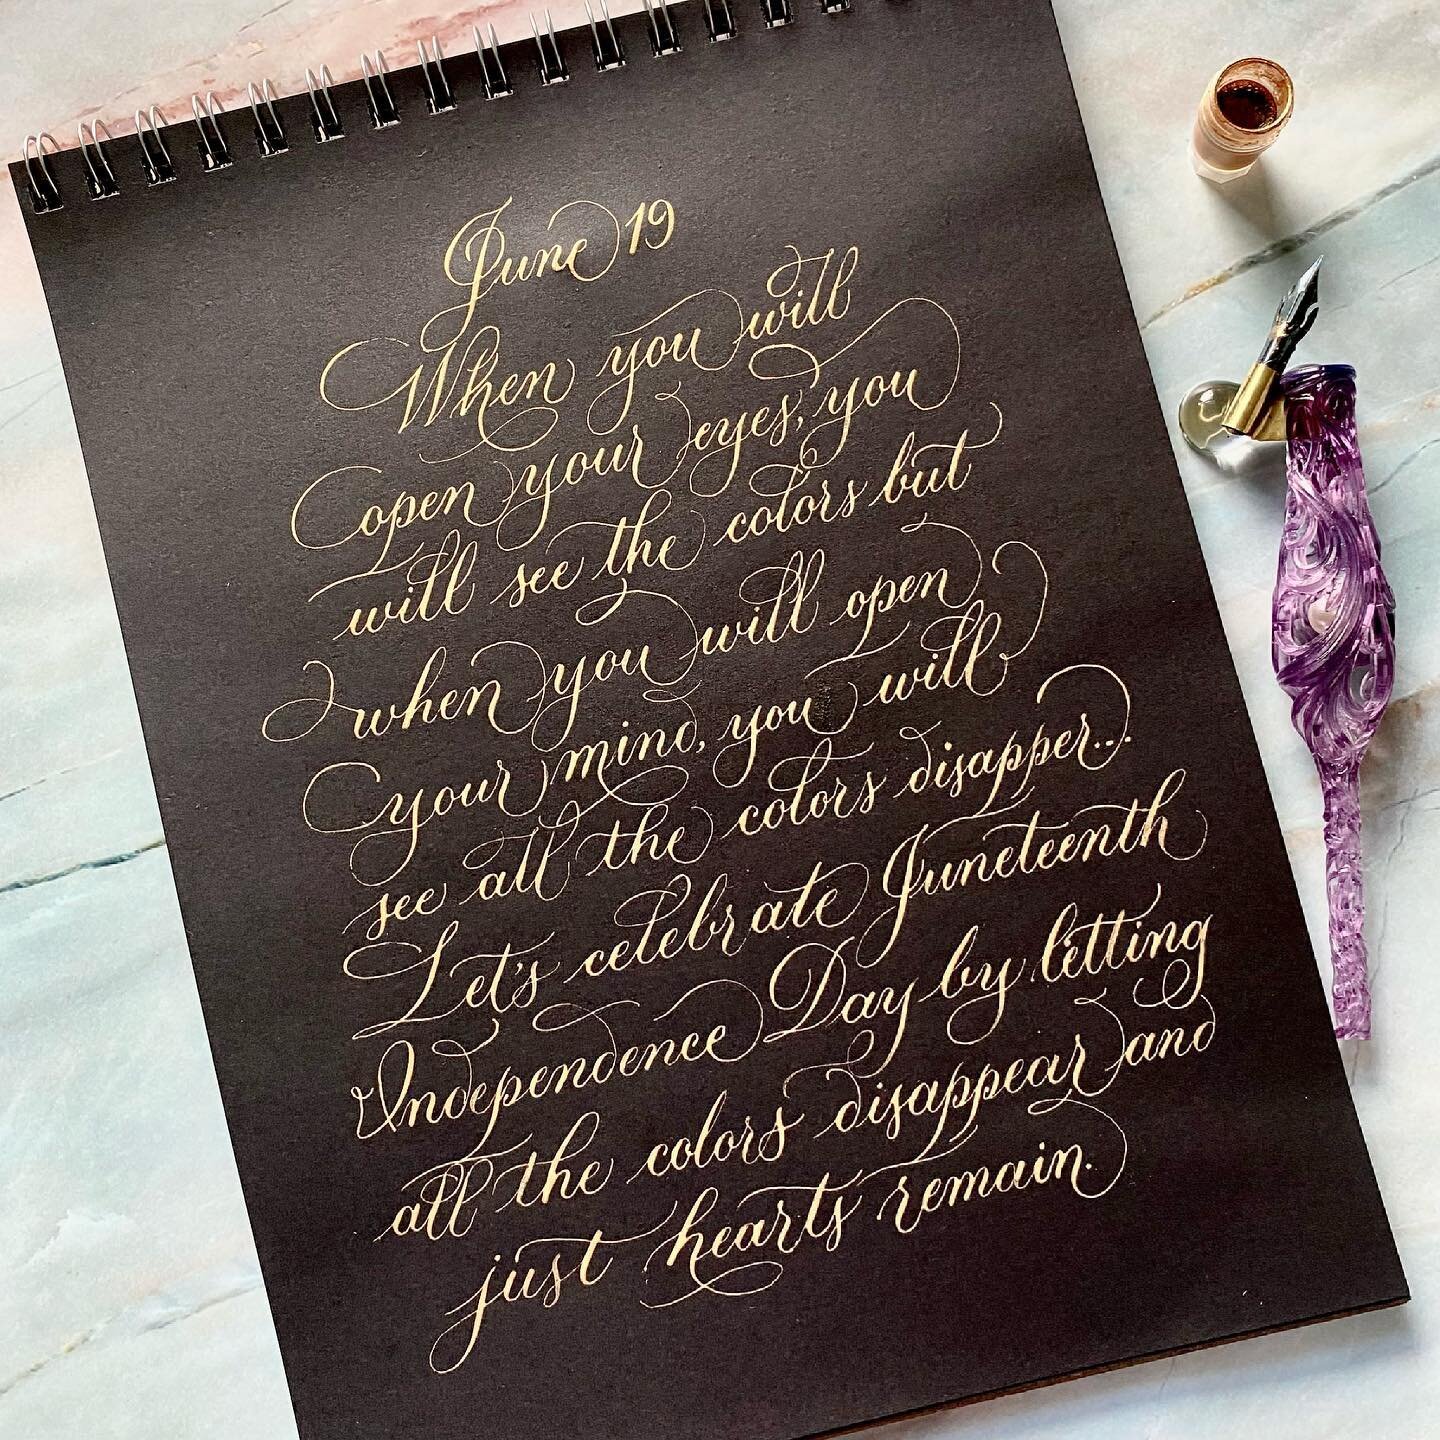 June 19
When you will
open your eyes, you
will see the colors but
when you will open
your mind, you will
see all the colors disapper...
Let's celebrate Juneteenth
Independence Day by letting
all the colors disappear and
just hearts remain.